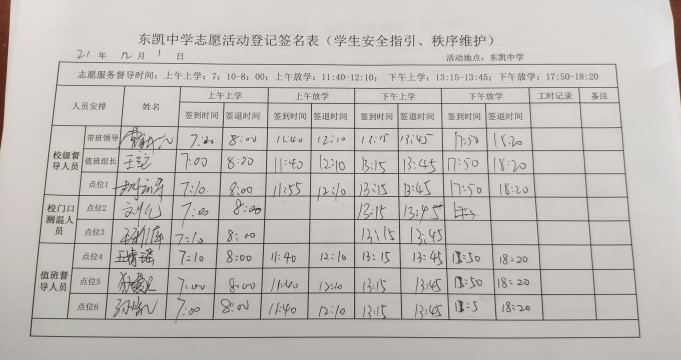 东凯中学志愿活动登记签名表（学生安全指引、秩序维护）
21 年 月 1 日 活动地点：东凯中学
志愿服务督导时间：上午上学：7：10-8：00；上午放学：11:40-12:10； 下午上学：13:15-13:45；下午放学：17:50-18:20
人员安排 姓名 上午上学 上午放学 下午上学 下午放学 工时记录 备注
签到时间 签退时间 签到时间 签退时间 签到时间 签退时间 签到时间 签退时间
校级督导人员 带班领导 7:20 8:00 11:40 12:10 13:15 13:45 17:50 18:20
值班组长 7:00 8:00 11:40 12:10 13:15 13:45 17:50 18:20
点位1 7:10 8:00 11:55 12:10 13:15 13:45 17:50 18:20
校门口测温人员 点位2 7:00 8:00 13:15 13:45
点位3 7:10 8:00 13:15 13:45
值班督导人员 点位4 王情瑶 7:10 8:00 11:40 12:10 13:15 13:45 :50 18:20
点位5 7:00 8:00 11:40 12:10 13:15 13:45 :50 18:20
点位6 7:00 8:00 11:40 12:10 13:15 13:45 18:20